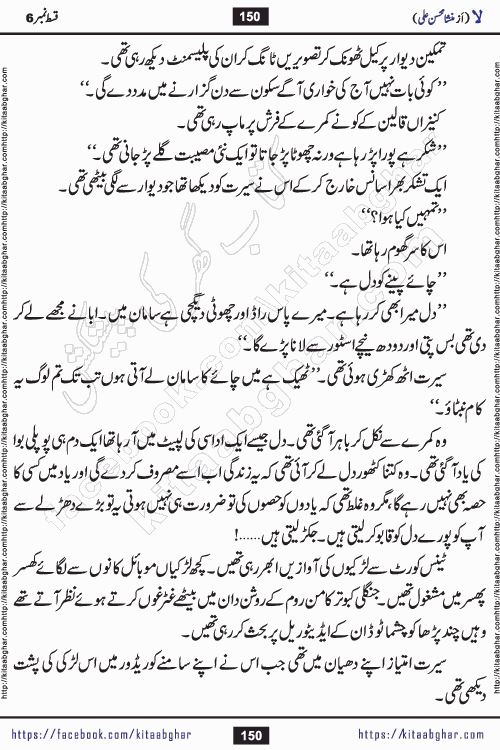 قسط نمبر 6
150
لا (از منشا محسن علی)
تمکین دیوار پر کیل ٹھونک کر تصویریں ٹانگ کر ان کی پلیسمنٹ دیکھ رہی تھی۔
’’کوئی بات نہیں آج کی خواری آگے سکون سے دن گزارنے میں مدد دے گی۔‘‘
کنیزاں قالین کے کونے کمرے کے فرش پر ماپ رہی تھی۔
’’شکر ہے پورا پڑ رہا ہے ورنہ چھوٹا پڑ جاتا تو ایک نئی مصیبت گلے پڑ جانی تھی۔‘‘
ایک تشکر بھرا سانس خارج کر کے اس نے سیرت کو دیکھا تھا جو دیوار سے لگی بیٹھی تھی۔
’’تمہیں کیا ہوا؟‘‘
اس کا سر گھوم رہا تھا۔
’’چائے پینے کو دل ہے۔‘‘
’’دل میرا بھی کر رہا ہے۔ میرے پاس راڈ اور چھوٹی دیگچی ہے سامان میں۔ ابا نے مجھے لے کر
دی تھی بس پتی اور دودھ نیچے اسٹور سے لانا پڑے گا۔‘‘
سیرت اٹھ کھڑی ہوئی تھی۔ ’’ٹھیک ہے میں چائے کا سامان لے آتی ہوں تب تک تم لوگ یہ
کام نبٹاؤ۔‘‘
وہ کمرے سے نکل کر باہر آ گئی تھی۔ دل جیسے ایک اداسی کی لپیٹ میں آ رہا تھا ایک دم ہی پوپلی بوا
کی یاد آ گئی تھی۔ وہ کتنا کٹھور دل لے کر آئی تھی کہ یہ زندگی اب اسے مصروف کر دے گی اور یاد میں کسی کا
حصہ بھی نہیں رہے گا، مگر وہ غلط تھی کہ یادوں کو حصوں کی تو ضرورت ہی نہیں ہوتی یہ تو بڑے دھڑلے سے
آپ کو پورے دل کو قابو کر لیتی ہیں۔ جکڑ لیتی ہیں......!
ٹینس کورٹ سے لڑکیوں کی آوازیں ابھر رہی تھیں۔ کچھ لڑکیاں موبائل کانوں سے لگائے کھسر
پھسر میں مشغول تھیں۔ جنگلی کبوتر کامن روم کے روشن دان میں بیٹھے غٹرغوں کرتے ہوئے نظر آتے تھے
وہیں چند پڑھاکو چشماٹو ڈان کے ایڈیٹوریل پر بحث کر رہی تھیں۔
سیرت امتیاز اپنے دھیان میں تھی جب اس نے اپنے سامنے کوریڈور میں اس لڑکی کی پشت
دیکھی تھی۔
https://facebook.com/kitaabghar
150
https://kitaabghar.com